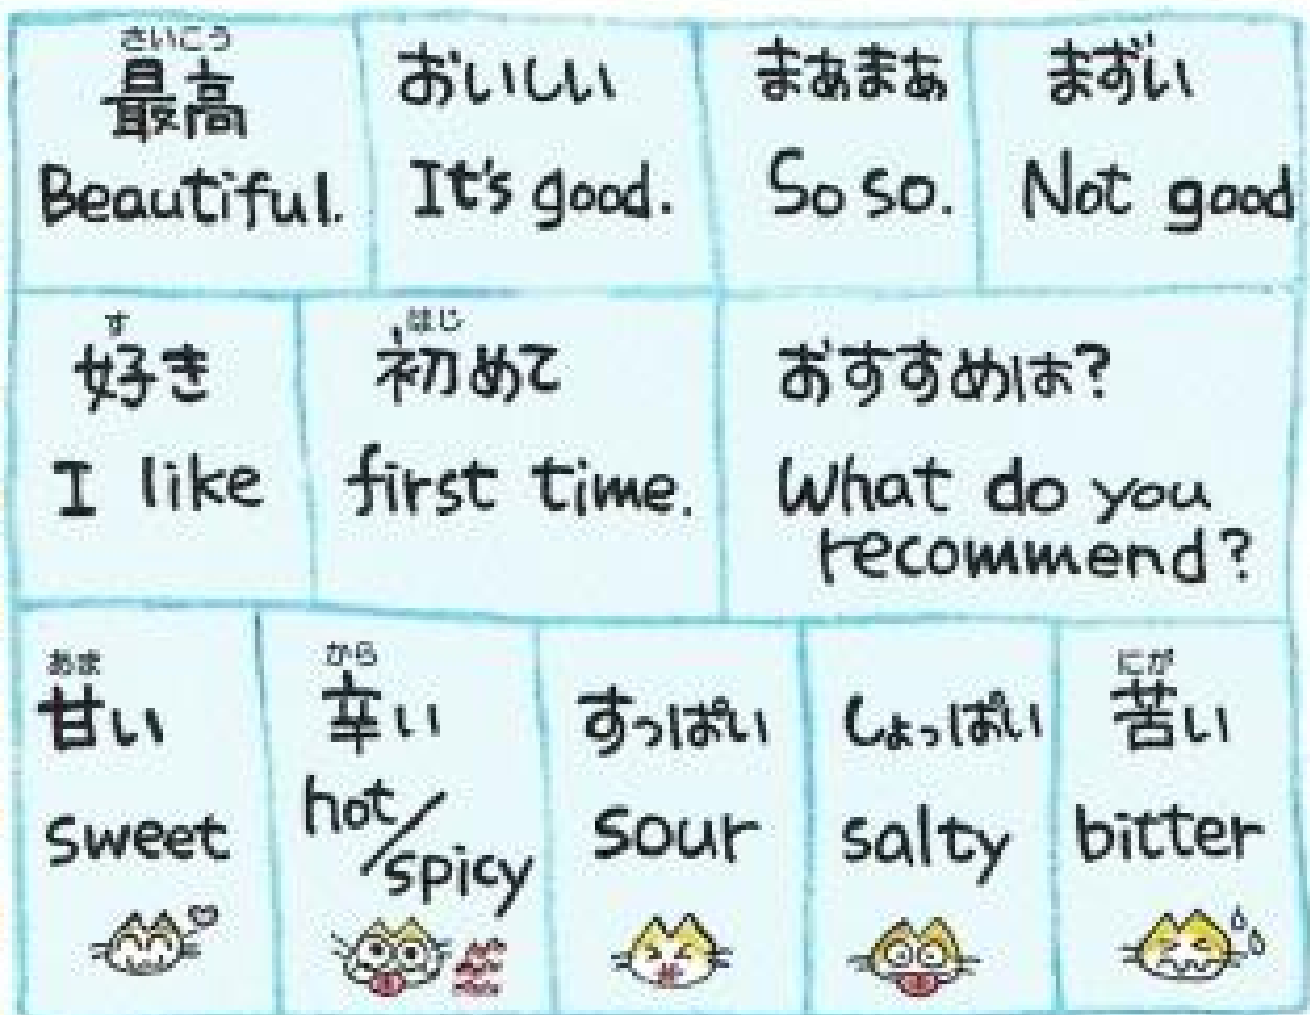 さいこう
最高
Beautiful.
おいしい
It's good.
まぁまぁ
So so.
まずい
Not good
す
好き
I like
はじ
初めて
first time.
おすすめは?
What do you
recommend?
あま
甘い
sweet
から
辛い
hot/
spicy
すっぱい
sour
しょっぱい
salty
にが
苦い
bitter